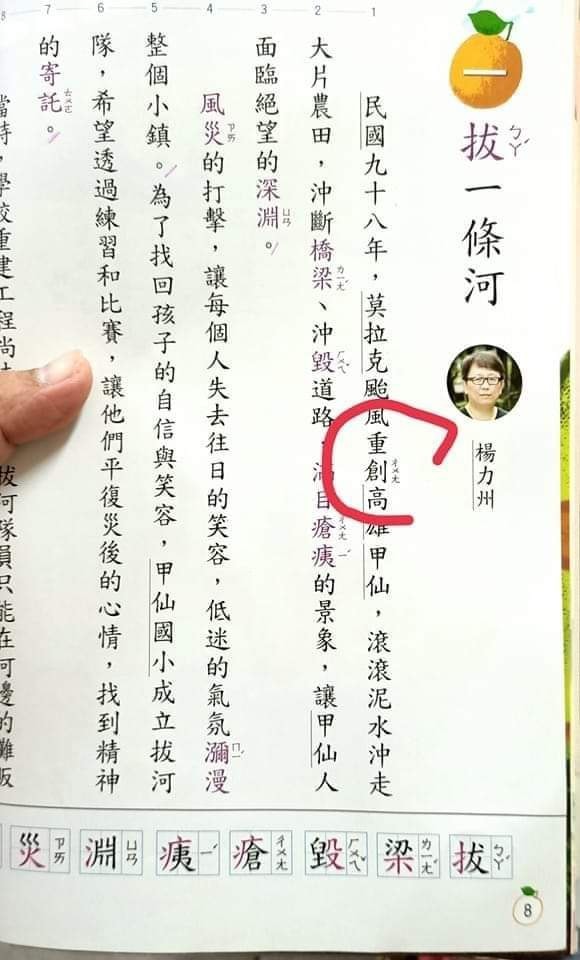 一
拔ㄅㄚˊ一條河
楊力州
1
2
3
4
5
6
7
8
民國九十八年，莫拉克颱風重創ㄔㄨㄤ高雄甲仙，滾滾泥水沖走
大片農田，沖斷橋梁ㄌㄧㄤˊ、沖毀ㄏㄨㄟˇ道路，滿目瘡ㄔㄨㄤ痍ㄧˊ的景象，讓甲仙人
面臨絕望的深淵ㄩㄢ。
風災ㄗㄞ的打擊，讓每個人失去往日的笑容，低迷的氣氛瀰ㄇㄧˊ漫
整個小鎮。為了找回孩子的自信與笑容，甲仙國小成立拔河
隊，希望透過練習和比賽，讓他們平復災後的心情，找到精神
的寄託ㄊㄨㄛ。
當時，學校重建工程尚 拔河隊員只能在河邊的灘
拔ㄅㄚˊ
梁ㄌㄧㄤˊ
毀ㄏㄨㄟˇ
瘡ㄔㄨㄤ
痍ㄧˊ
淵ㄩㄢ
災ㄗㄞ
8